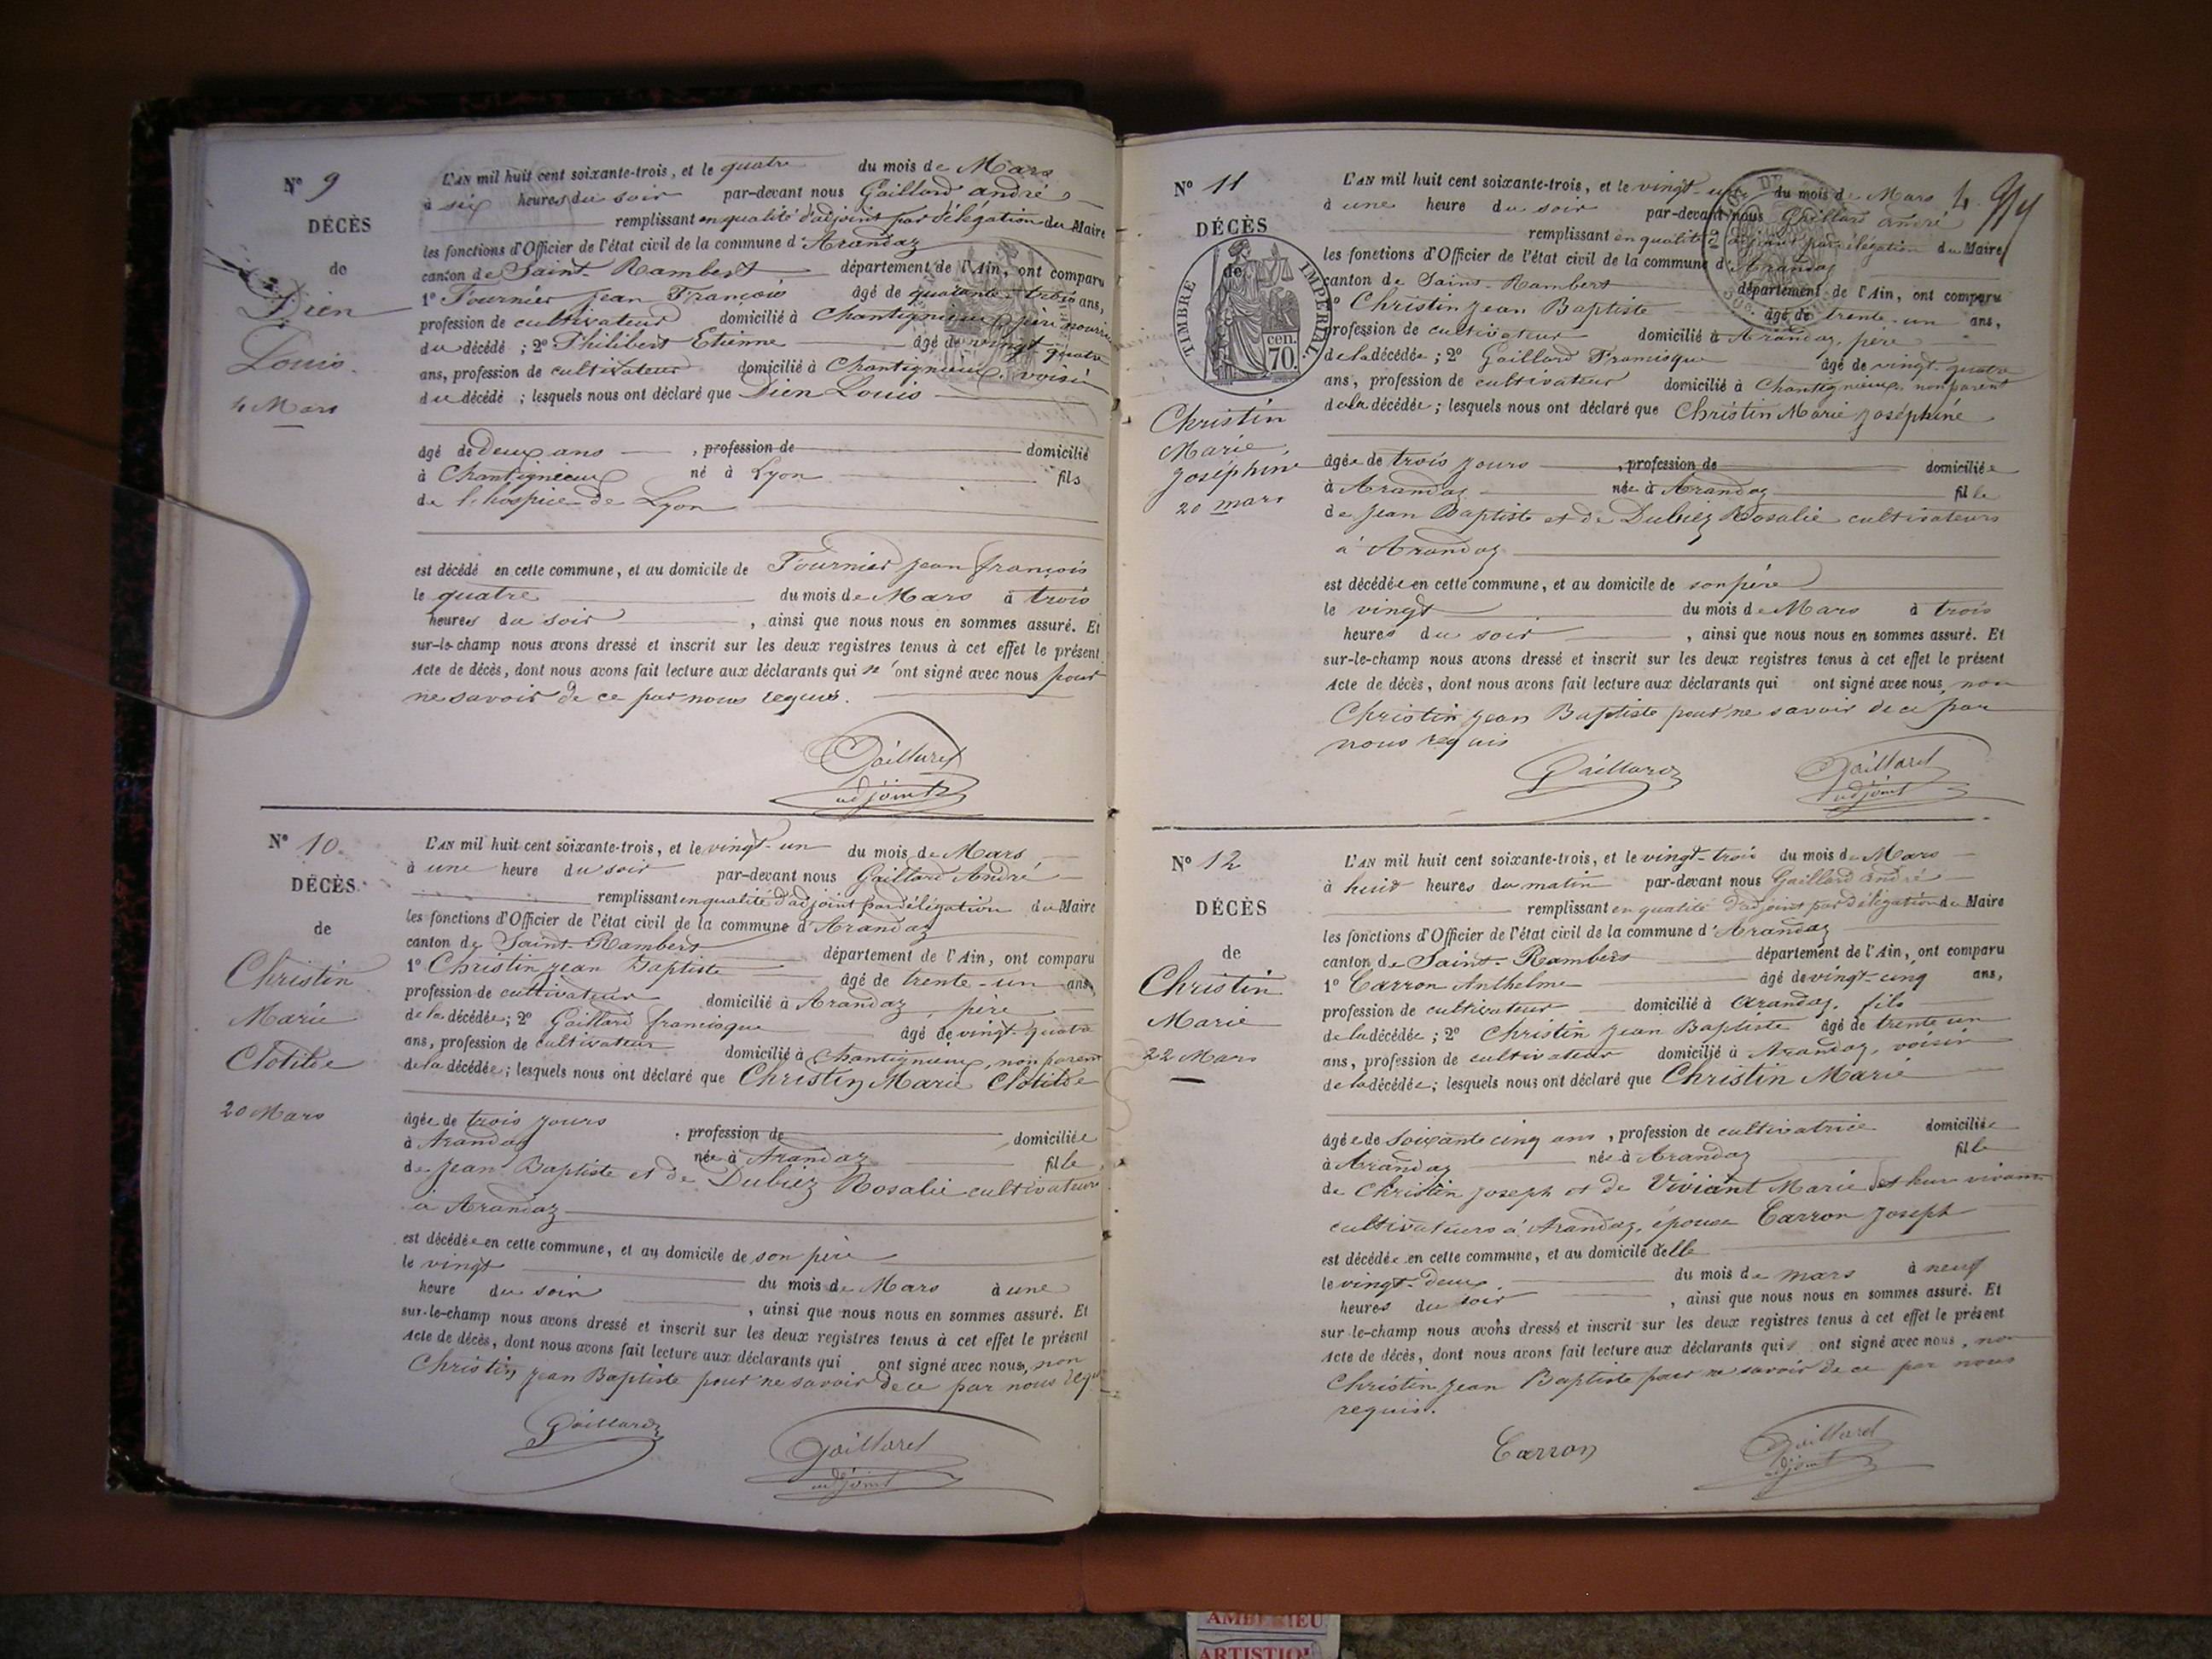 N° 9
DÉCÈS
de
Dien
Louis.
4 Mars
L'AN mil huit cent soixante-trois, et le quatre du mois de Mars
à six heures du soir par-devant nous Gaillard andré
remplissant en qualité d'adjoint par délégation du Maire
les fonctions d'Officier de l'état civil de la commune d'Arandaz
canton de Saint-Rambert département de l'Ain, ont comparu
1° Fournier Jean François âgé de quarante-trois ans,
profession de cultivateur domicilié à Chantignieux, père nourricier
du décédé ; 2° Philibert Etienne âgé de vingt quatre
ans, profession de cultivateur domicilié à Chantignieux. voisin
du décédé ; lesquels nous ont déclaré que Dien Louis
âgé de deux ans , profession de domicilié
à Chantignieux né à Lyon fils
de l'hospice de Lyon
est décédé en cette commune, et au domicile de Fournier Jean françois
le quatre du mois de Mars à trois
heures du soir , ainsi que nous nous en sommes assuré. Et
sur-le-champ nous avons dressé et inscrit sur les deux registres tenus à cet effet le présent
Acte de décès, dont nous avons fait lecture aux déclarants qui n'ont signé avec nous pour
ne savoir de ce par nous requis.
Gaillard
adjoint
N° 10.
DÉCÈS
de
Christin
Marie
Clotilde
20 Mars
L'AN mil huit cent soixante-trois, et le vingt-un du mois de Mars
à une heure du soir par-devant nous Gaillard André
remplissant en qualité d'adjoint par délégation du Maire
les fonctions d'Officier de l'état civil de la commune d'Arandaz
canton de Saint-Rambert département de l'Ain, ont comparu
1° Christin jean Baptiste âgé de trente-un ans,
profession de cultivateur domicilié à Arandaz, père
de la décédée ; 2° Gaillard francisque âgé de vingt-quatre
ans, profession de cultivateur domicilié à Chantignieux, non parent
de la décédée ; lesquels nous ont déclaré que Christin Marie Clotilde
âgée de trois jours , profession de domiciliée
à Arandaz née à Arandaz fille
de jean Baptiste et de Dubiez Rosalie cultivateurs
à Arandaz
est décédée en cette commune, et au domicile de son père
le vingt du mois de Mars à une
heure du soir , ainsi que nous nous en sommes assuré. Et
sur-le-champ nous avons dressé et inscrit sur les deux registres tenus à cet effet le présent
Acte de décès, dont nous avons fait lecture aux déclarants qui ont signé avec nous, non
Christin jean Baptiste pour ne savoir de ce par nous requis
Gaillard
Gaillard
adjoint
4.
N° 11
DÉCÈS
de
TIMBRE IMPÉRIAL.
70 cen.
Christin
Marie
Joséphine
20 mars
L'AN mil huit cent soixante-trois, et le vingt-un du mois de Mars
à une heure du soir par-devant nous Gaillard andré
remplissant en qualité d'adjoint par délégation du Maire
les fonctions d'Officier de l'état civil de la commune d'Arandaz
canton de Saint-Rambert département de l'Ain, ont comparu
1° Christin Jean Baptiste âgé de trente-un ans,
profession de cultivateur domicilié à Arandaz, père
de la décédée ; 2° Gaillard Francisque âgé de vingt-quatre
ans, profession de cultivateur domicilié à Chantignieux, non parent
de la décédée ; lesquels nous ont déclaré que Christin Marie joséphine
âgée de trois jours , profession de domiciliée
à Arandaz née à Arandaz fille
de jean Baptiste et de Dubiez Rosalie cultivateurs
à Arandaz
est décédée en cette commune, et au domicile de son père
le vingt du mois de Mars à trois
heures du soir , ainsi que nous nous en sommes assuré. Et
sur-le-champ nous avons dressé et inscrit sur les deux registres tenus à cet effet le présent
Acte de décès, dont nous avons fait lecture aux déclarants qui ont signé avec nous, non
Christin jean Baptiste pour ne savoir de ce par
nous requis
Gaillard
Gaillard
adjoint
N° 12
DÉCÈS
de
Christin
Marie
22 Mars
L'AN mil huit cent soixante-trois, et le vingt-trois du mois de Mars
à huit heures du matin par-devant nous Gaillard andré
remplissant en qualité d'adjoint par délégation du Maire
les fonctions d'Officier de l'état civil de la commune d'Arandaz
canton de Saint-Rambert département de l'Ain, ont comparu
1° Carron Anthelme âgé de vingt-cinq ans,
profession de cultivateur domicilié à Arandaz, fils
de la décédée ; 2° Christin Jean Baptiste âgé de trente un
ans, profession de cultivateur domicilié à Arandaz, voisin
de la décédée ; lesquels nous ont déclaré que Christin Marie
âgée de soixante cinq ans , profession de cultivatrice domiciliée
à Arandaz née à Arandaz fille
de Christin joseph et de Viviant Marie de leur vivant
cultivateurs à Arandaz, épouse Carron Joseph
est décédée en cette commune, et au domicile d'elle
le vingt-deux du mois de mars à neuf
heures du soir , ainsi que nous nous en sommes assuré. Et
sur-le-champ nous avons dressé et inscrit sur les deux registres tenus à cet effet le présent
Acte de décès, dont nous avons fait lecture aux déclarants qui ont signé avec nous, non
Christin jean Baptiste pour ne savoir de ce par nous
requis.
Carron
Gaillard
adjoint
AMBERIEU
ARTISTIQU